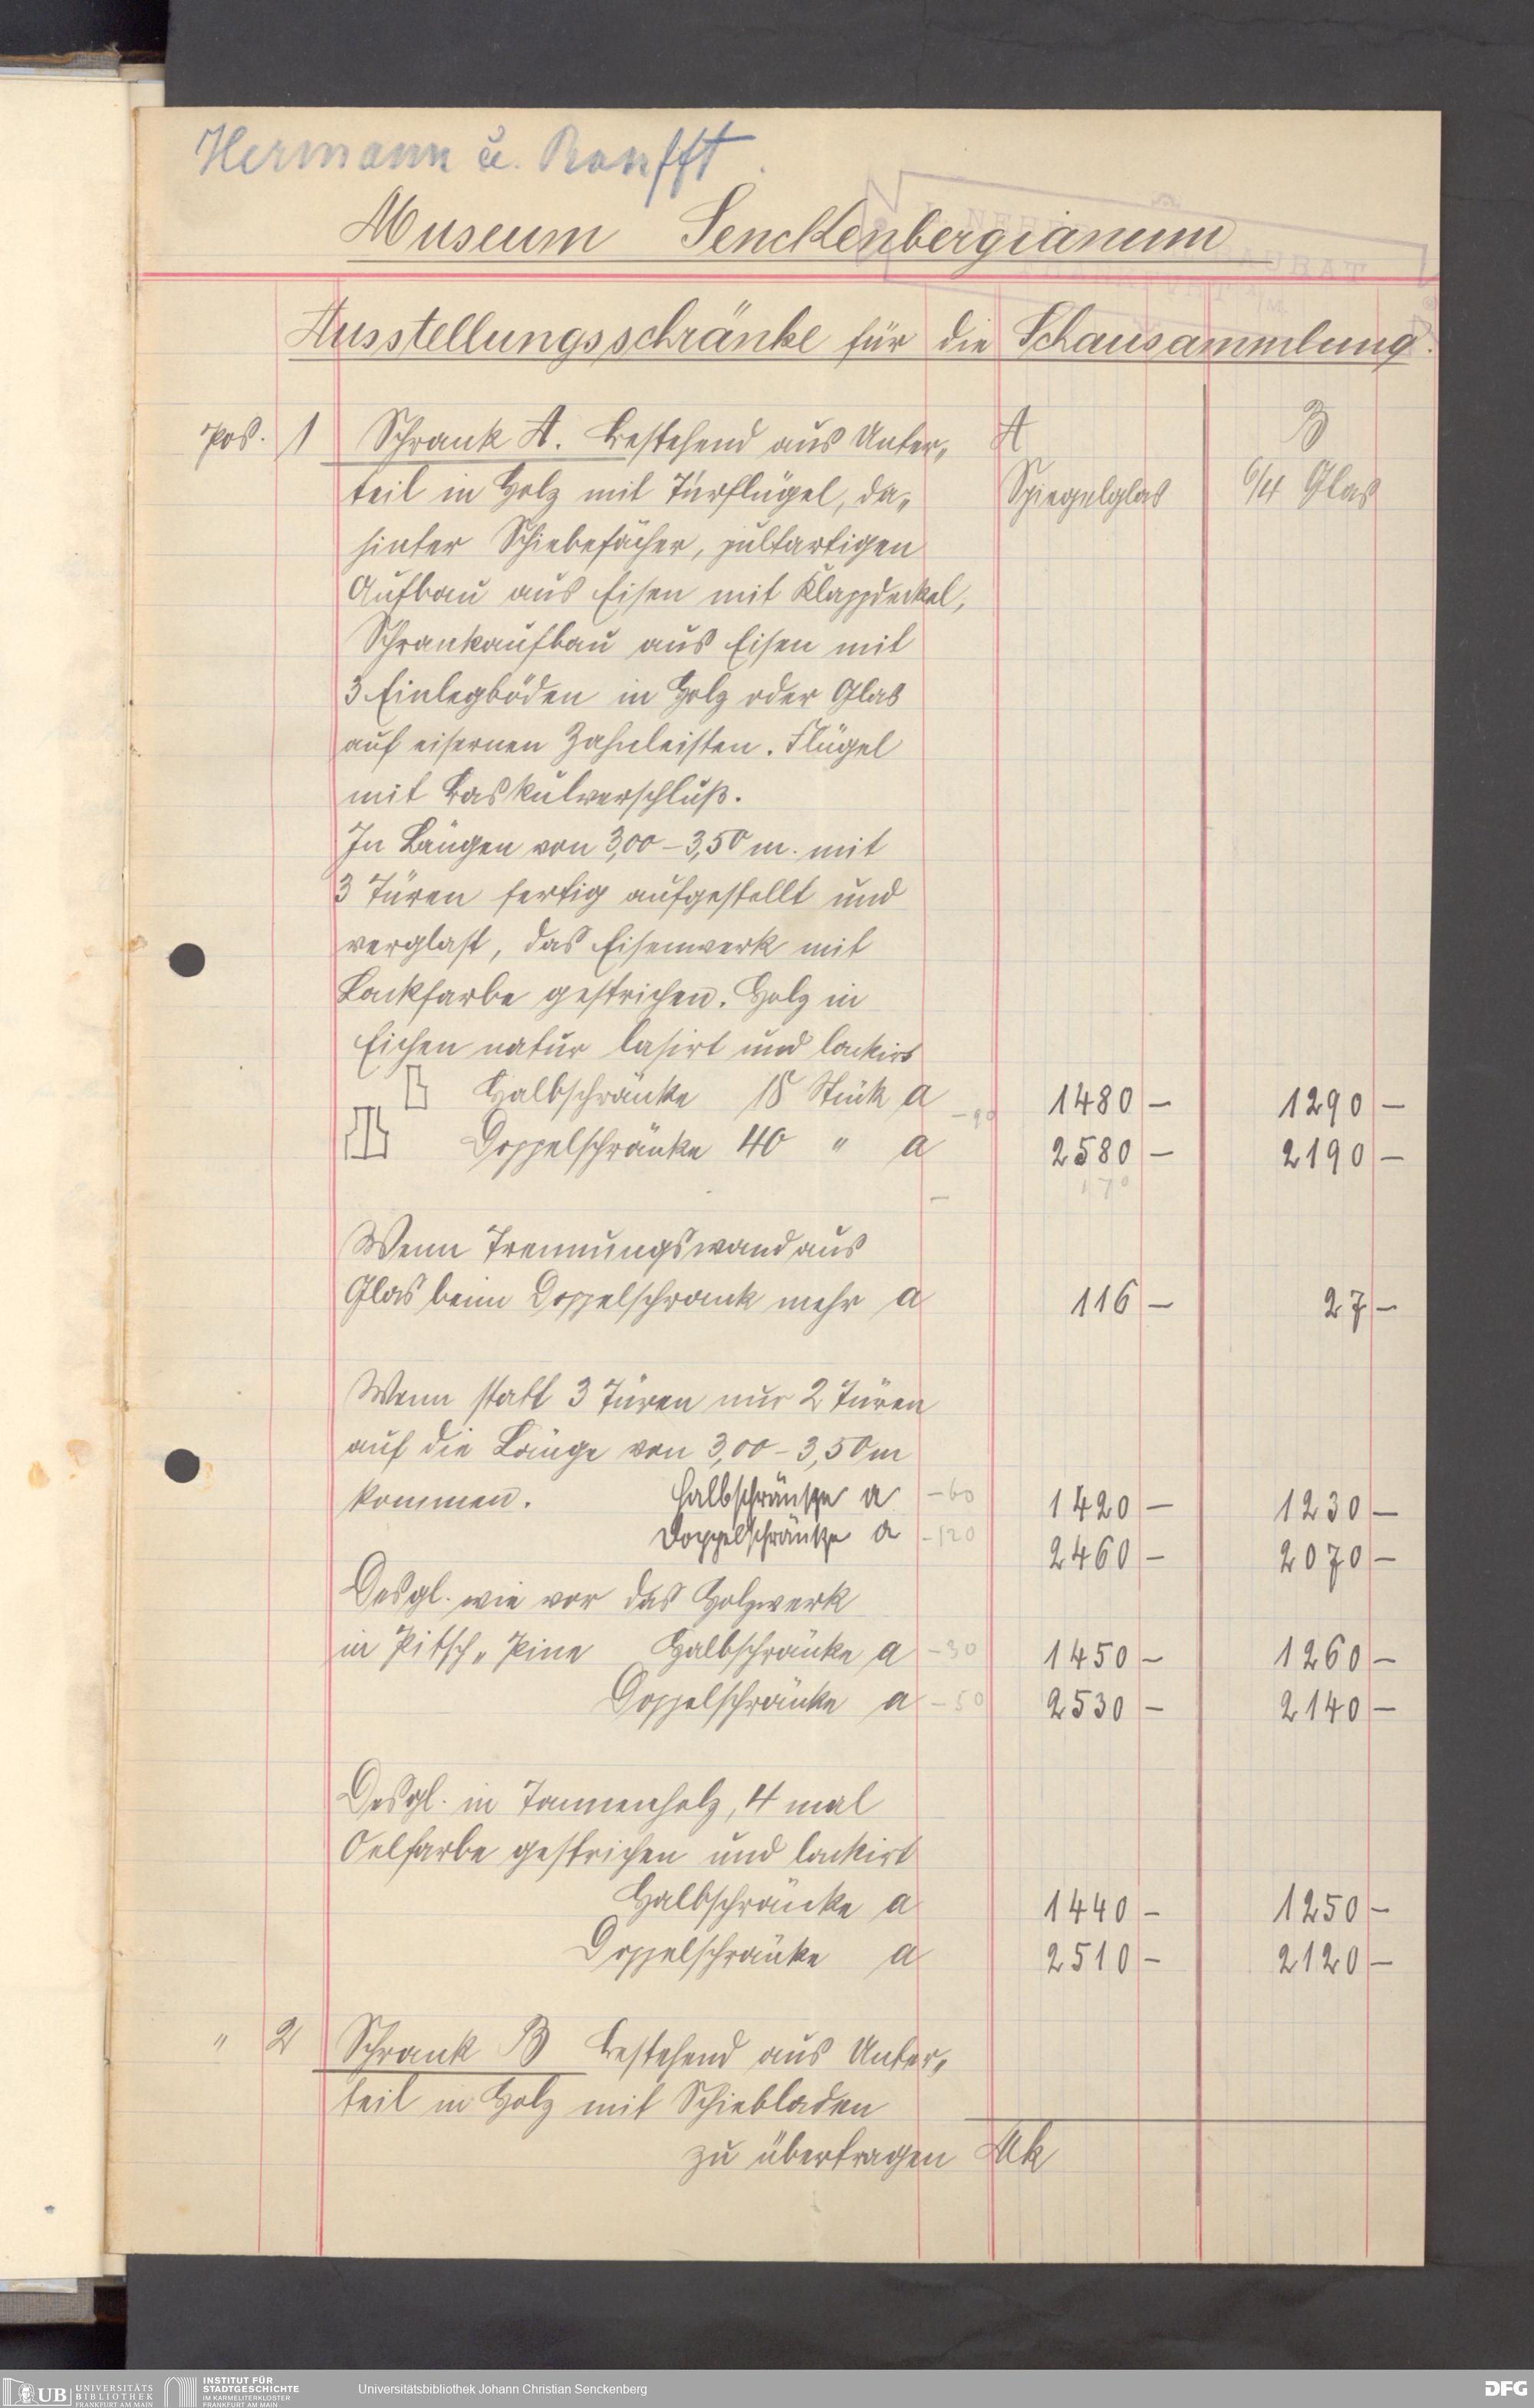 Hermann u. Ranfft.
Museum Senckenbergianum
Ausstellungsschränke für die Schausammlung.
Pos. 1 Schrank A. Bestehend aus Unter„ A B
teil in Holz mit Türflügel, da„ Spiegelglas 6/4 Glas
hinter Schiebefächer, pultartigen
Aufbau aus Eisen mit Klappdeckel,
Schrankaufbau aus Eisen mit
3 Einlegböden in Holz oder Glas
auf eisernen Zahnleisten. Flügel
mit Baskülverschluß.
In Längen von 3,00 – 3,50 m. mit
3 Türen fertig aufgestellt und
verglast, das Eisenwerk mit
Lackfarbe gestrichen. Holz in
Eichen natur lasirt und lackirt
Halbschränke 18 Stück a – 90 1480 – 1290 –
Doppelschränke 40 " a 2580 – 2190 –
170
–
Wenn Trennungswand aus
Glas beim Doppelschrank mehr a 116 – 27 –
Wenn statt 3 Türen nur 2 Türen
auf die Länge von 3,00 – 3,50 m
kommen. Halbschränke a – 60 1420 – 1230 –
Doppelschränke a – 120 2460 – 2070 –
Desgl. wie vor das Holzwerk
in Pitsch„ Pine Halbschränke a – 30 1450 – 1260 –
Doppelschränke a – 50 2530 – 2140 –
Desgl. in Tannenholz, 4 mal
Oelfarbe gestrichen und lackirt
Halbschränke a 1440 – 1250 –
Doppelschränke a 2510 – 2120 –
" 2 Schrank B Bestehend aus Unter„
teil in Holz mit Schiebladen
zu übertragen Mk
UB UNIVERSITÄTS
BIBLIOTHEK
FRANKFURT AM MAIN
INSTITUT FÜR
STADTGESCHICHTE
IM KARMELITERKLOSTER
FRANKFURT AM MAIN
Universitätsbibliothek Johann Christian Senckenberg
DFG